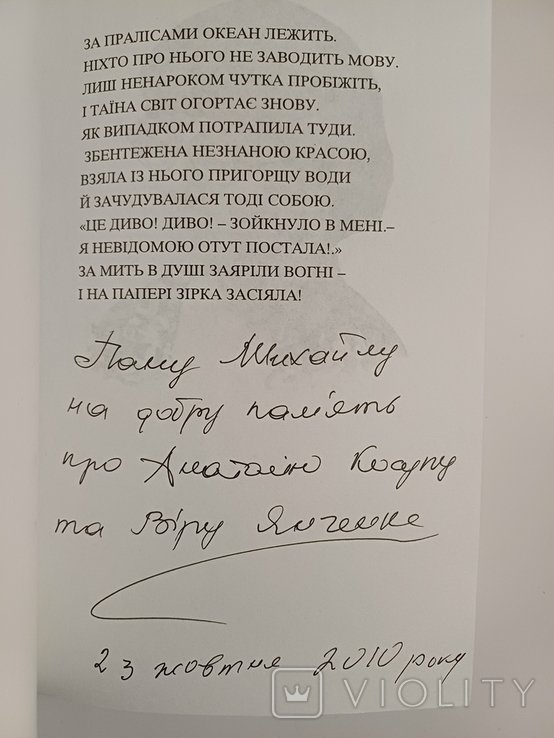 ЗА ПРАЛІСАМИ ОКЕАН ЛЕЖИТЬ.
НІХТО ПРО НЬОГО НЕ ЗАВОДИТЬ МОВУ.
ЛИШ НЕНАРОКОМ ЧУТКА ПРОБІЖІТЬ,
І ТАЇНА СВІТ ОГОРТАЄ ЗНОВУ.
ЯК ВИПАДКОМ ПОТРАПИЛА ТУДИ.
ЗБЕНТЕЖЕНА НЕЗНАНОЮ КРАСОЮ,
ВЗЯЛА ІЗ НЬОГО ПРИГОРЩУ ВОДИ
Й ЗАЧУДУВАЛАСЯ ТОДІ СОБОЮ.
«ЦЕ ДИВО! ДИВО! – ЗОЙКНУЛО В МЕНІ.–
Я НЕВІДОМОЮ ОТУТ ПОСТАЛА!.»
ЗА МИТЬ В ДУШІ ЗАЯРІЛИ ВОГНІ –
І НА ПАПЕРІ ЗІРКА ЗАСІЯЛА!
Пану Михайлу
на добру пам'ять
про
та Віру Янченко
23 жовтня 2010 року
VIOLITY